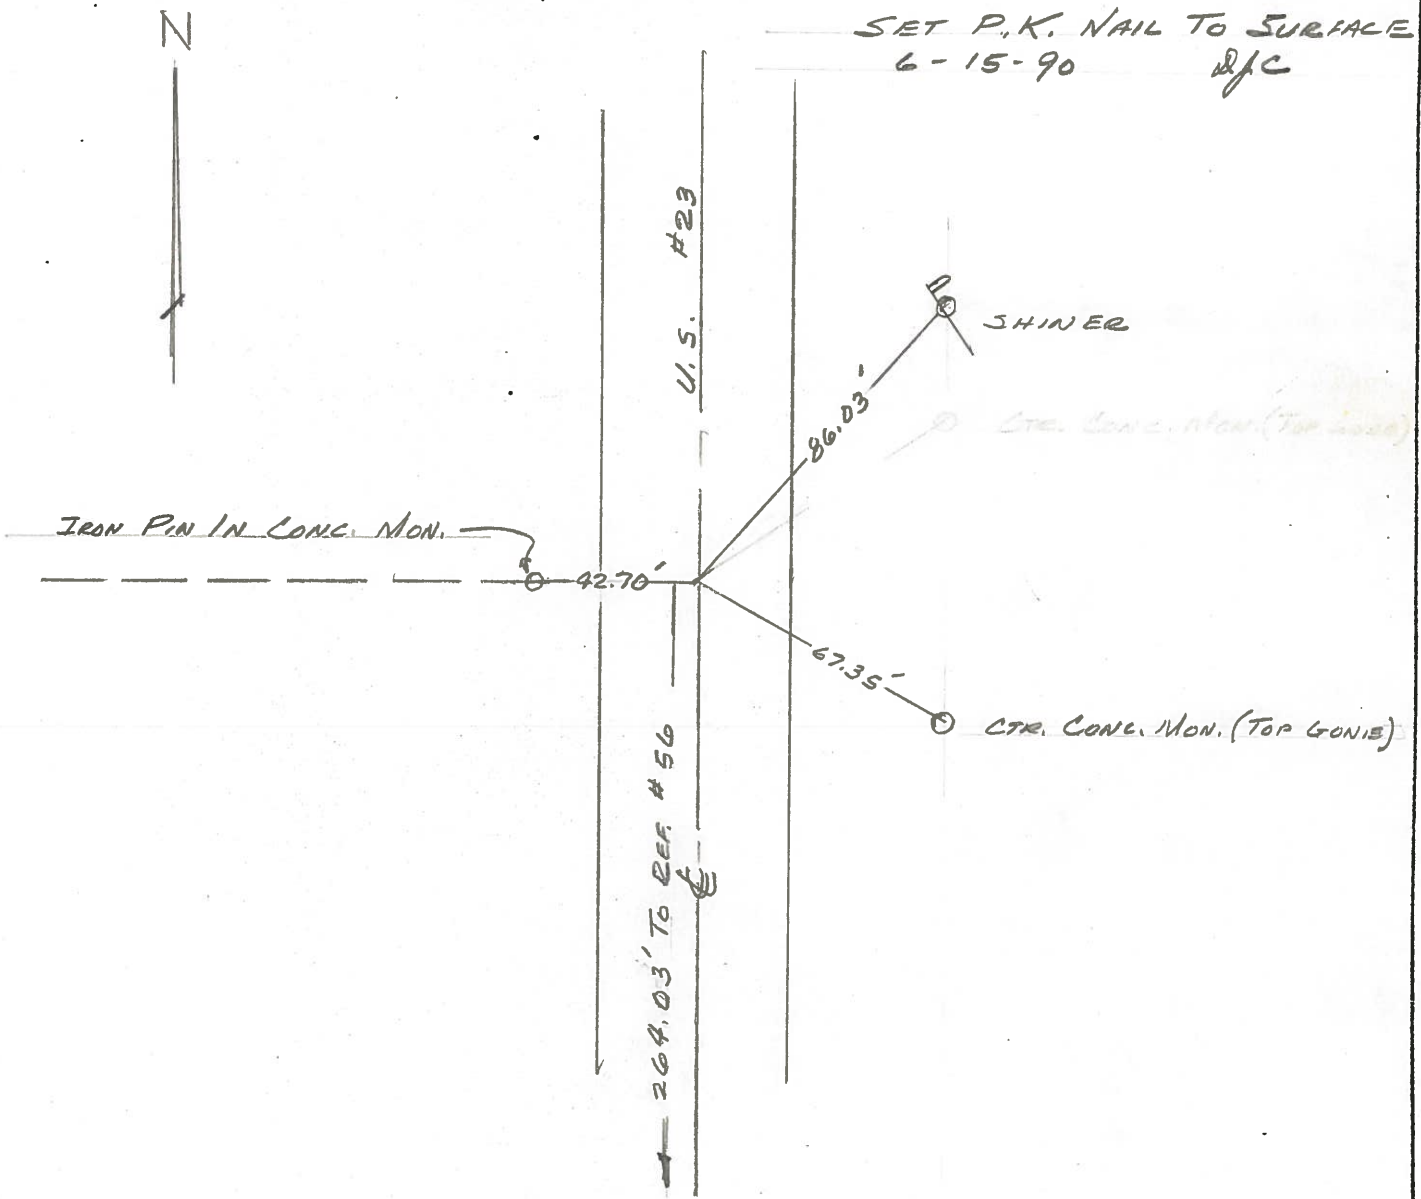 N
SET P.K. NAIL TO SURFACE
6-15-90 DJC
U.S. #23
SHINER
86.03'
CTR. CONC. MON. (TOP
IRON PIN IN CONC. MON.
42.70'
67.35'
CTR. CONC. MON. (TOP GONE)
264.03' TO REF. #56
℄